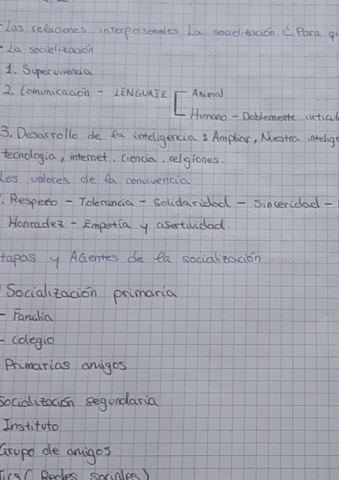 - Las relaciones interpersonales. La socialización ¿Para qu
- La socialización
1. Supervivencia
2. Comunicación - LENGUAJE [ Animal
Humano - Doblemente articul
3. Desarrollo de la inteligencia: Ampliar, Nuestra intelige
tecnología, internet, ciencia, religiones.
Los valores de la convivencia
. Respeto - Tolerancia - Solidaridad - Sinceridad -
Honradez - Empatía y asertividad.
tapas y Agentes de la socialización
Socialización primaria
- Familia
- colegio
Primarias amigos
Socialización segundaria
Instituto
Grupo de amigos
Tics ( Redes sociales )